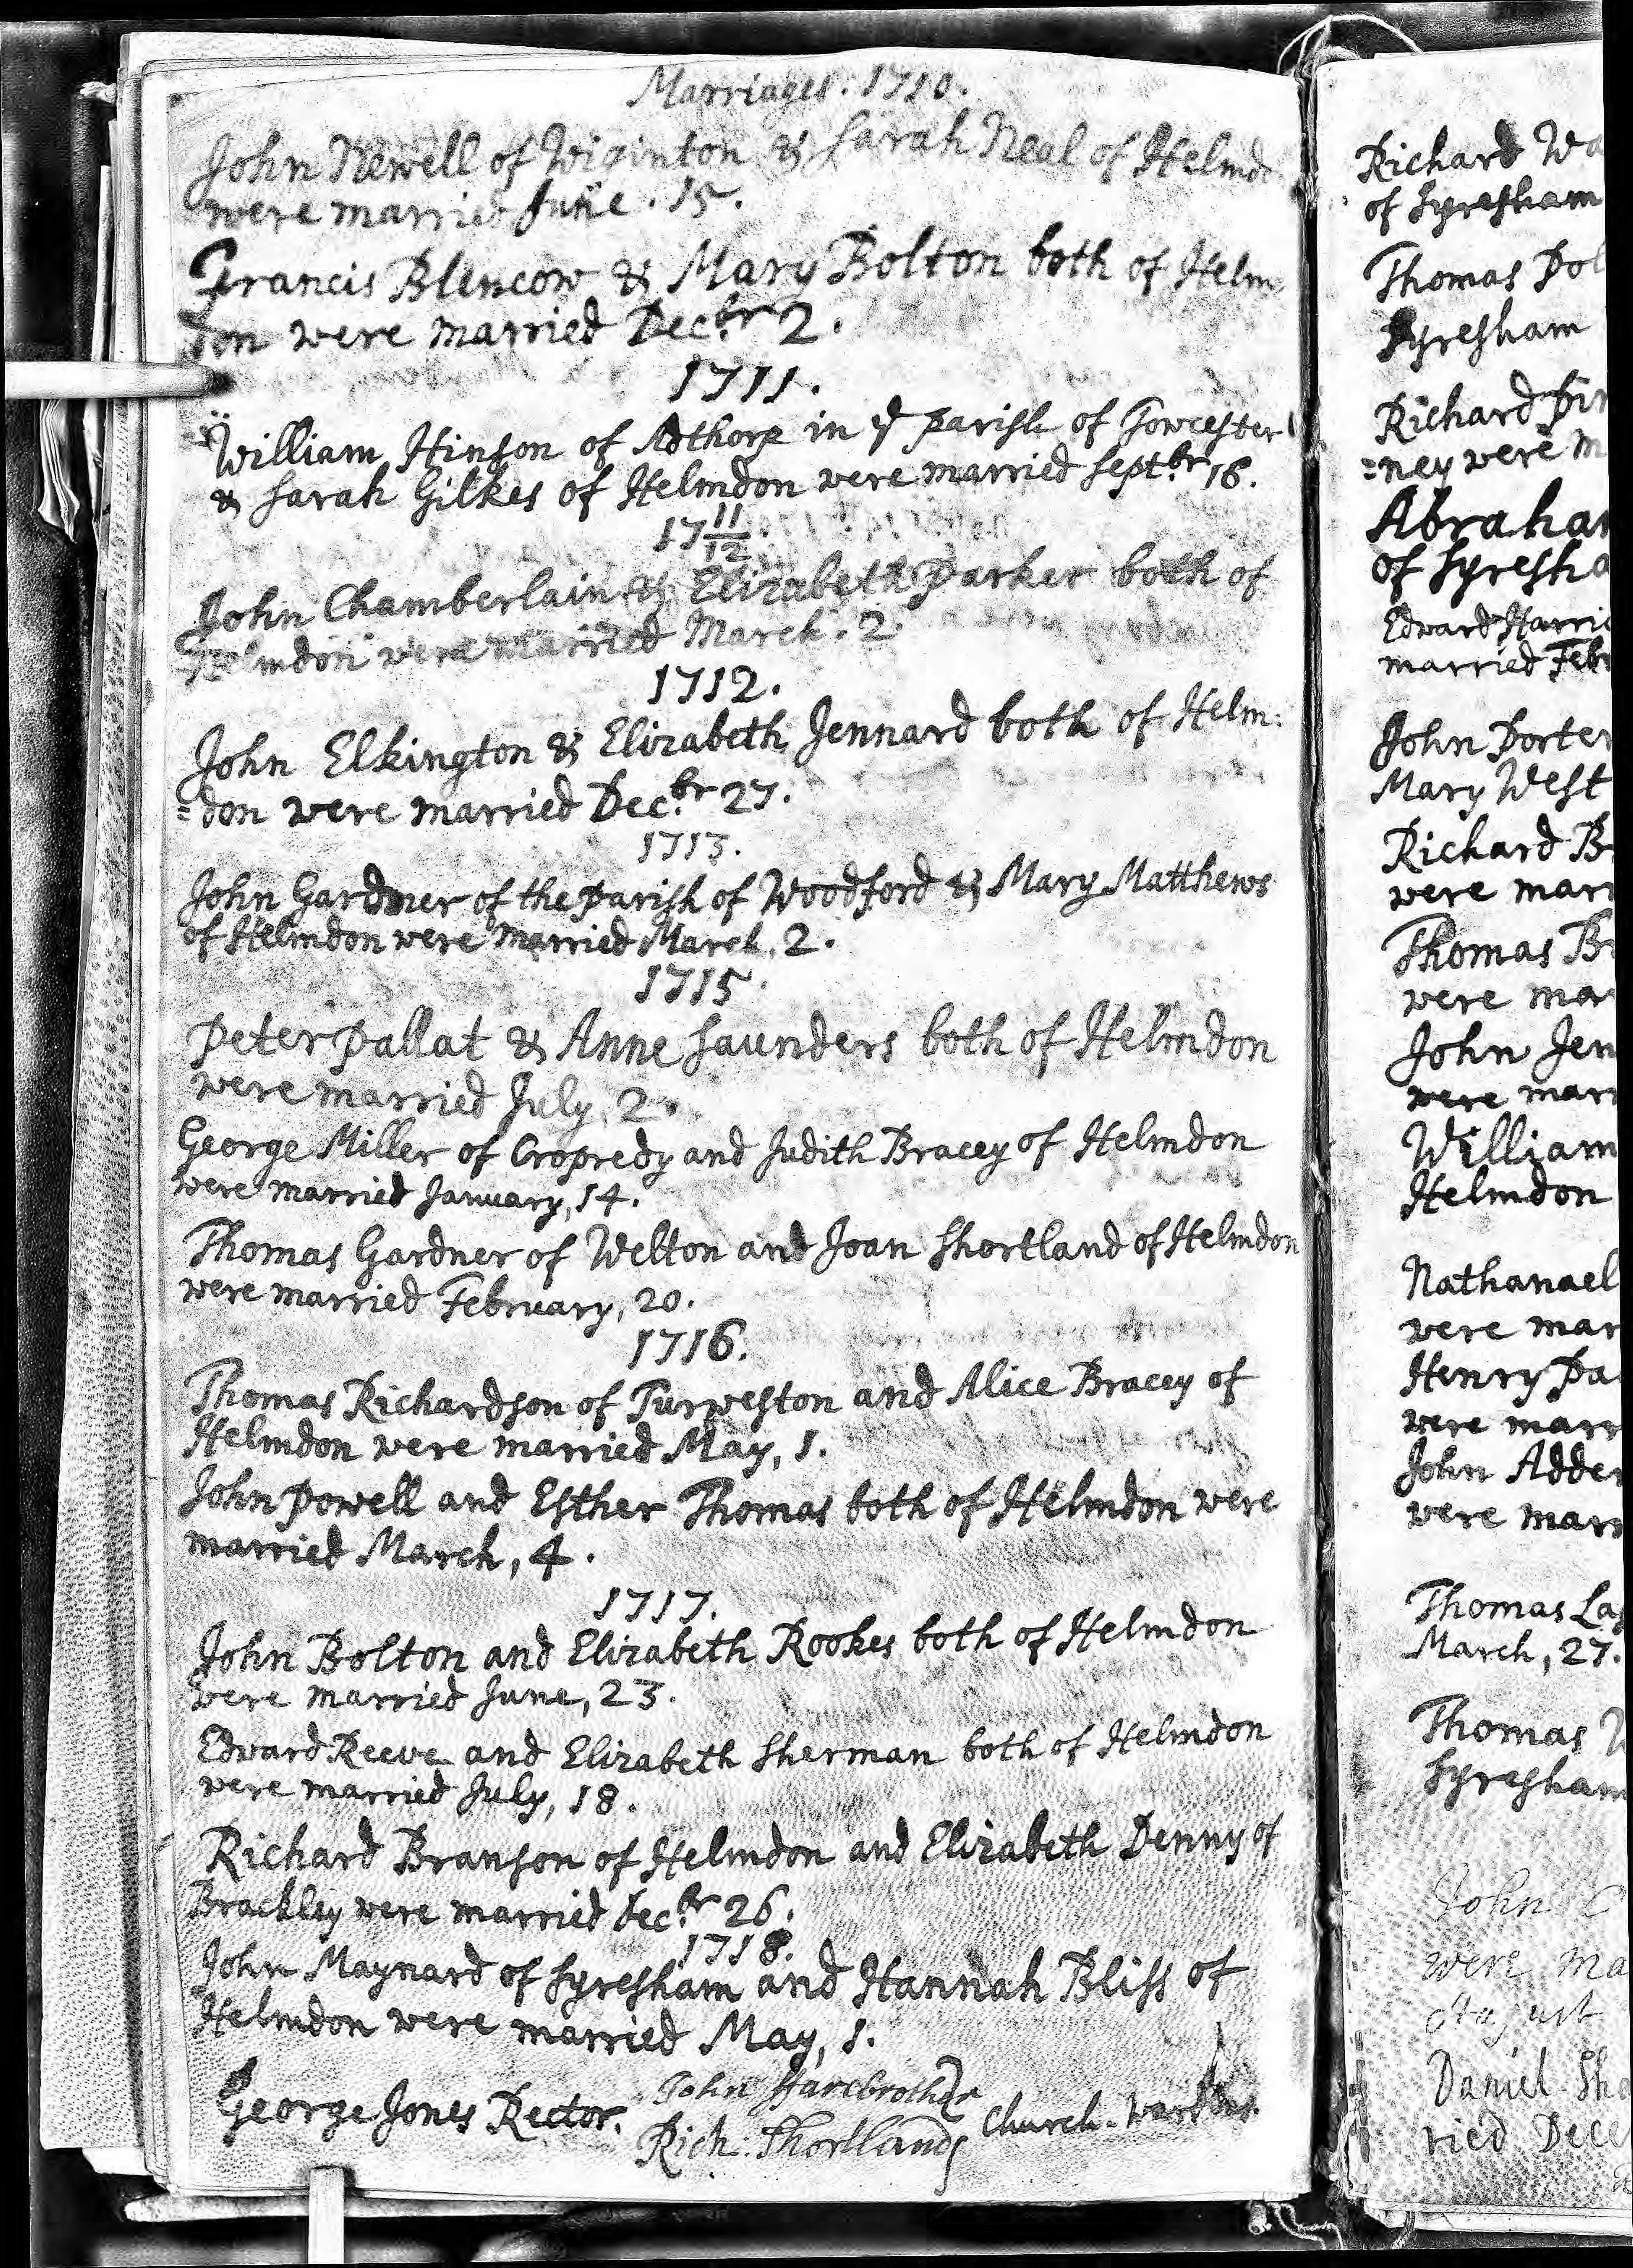 Marriages. 1710.
John Newell of Wiginton & Sarah Neal of Helmdo
were married June. 15.
Francis Blencow & Mary Bolton both of Helm
don were married Decbr 2.
1711.
William Hinson of Adthorp in ye parish of Towcester
& Sarah Gilkes of Helmdon were married Septbr 16.
17 11/12.
John Chamberlain & Elizabeth Parker both of
Helmdon were married March. 2.
1712.
John Elkington & Elizabeth Jennard both of Helm:
=don were married Decbr 27.
1713.
John Gardner of the Parish of Woodford & Mary Matthews
of Helmdon were married March. 2.
1715.
Peter Pallat & Anne Saunders both of Helmdon
were married July, 2.
George Miller of Cropredy and Judith Bracey of Helmdon
were married January, 14.
Thomas Gardner of Welton and Joan Shortland of Helmdon
were married February, 20.
1716.
Thomas Richardson of Turweston and Alice Bracey of
Helmdon were married May, 1.
John Powell and Esther Thomas both of Helmdon were
married March, 4.
1717.
John Bolton and Elizabeth Rookes both of Helmdon
were married June, 23.
Edward Reeve and Elizabeth Sherman both of Helmdon
were married July, 18.
Richard Branson of Helmdon and Elizabeth Denny of
Brackley were married Decbr 26.
1718.
John Maynard of Syresham and Hannah Bliss of
Helmdon were married May, 1.
George Jones Rector. John ffarebrother
Rich: Shortland Church-Wardens.
Richard Wa
of Syresham
Thomas Pol
Syresham
Richard
=ney were m
Abraham
of Syresha
Edward Harri
married Feb
John Porter
Mary West
Richard B
were marr
Thomas Br
were mar
John Jen
were marr
William
Helmdon
Nathanael
were mar
Henry Pa
were marr
John Adde
were marr
Thomas La
March, 27.
Thomas
Syresham
John C
were ma
August
Daniel Sho
ried Dece